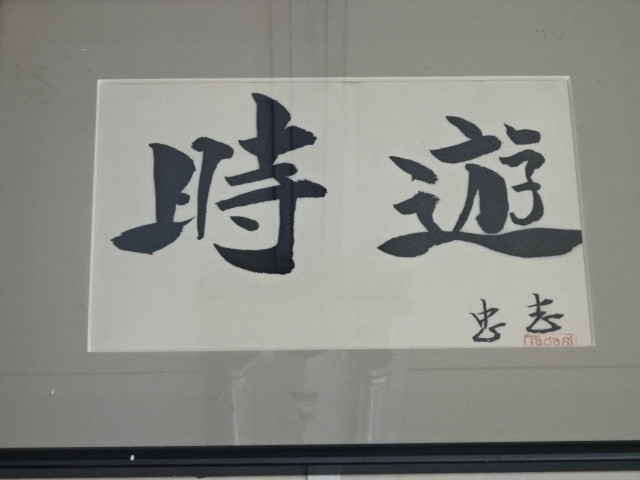 時遊
忠志